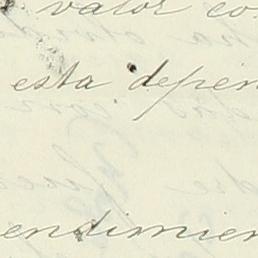 valor co
esta depen
endimien